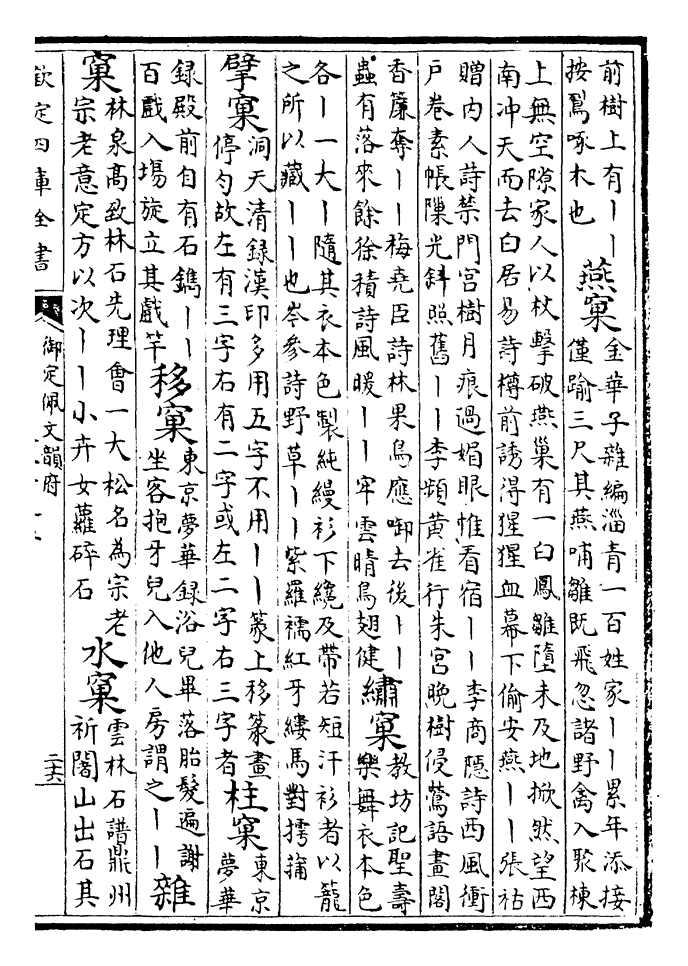 前樹上有丨丨
按鴷啄木也
燕窠
金華子雜編淄青一百姓家丨丨累年添接
僅踰三尺其燕哺雛既飛忽諸野禽入聚棟
上無空隙家人以杖擊破燕巢有一白鳳雛墮未及地掀然望西
南沖天而去白居易詩樽前誘得猩猩血幕下偷安燕丨丨張祜
贈内人詩禁門宮樹月痕過媚眼惟看宿丨丨李商隱詩西風衝
戶卷素帳隟光斜照舊丨丨李頻黃雀行朱宮晚樹侵鶯語畫閣
香簾奪丨丨梅堯臣詩林果鳥應啣去後丨丨
蟲有落來餘徐積詩風暖丨丨牢雲晴鳥翅健
繡窠
教坊記聖壽
樂舞衣本色
各丨一大丨隨其衣本色製純縵衫下纔及帶若短汗衫者以籠
之所以藏丨丨也岑參詩野草丨丨紫羅襦紅牙縷馬對摴蒱
擘窠
洞天清録漢印多用五字不用丨丨篆上移篆畫
停勻故左有三字右有二字或左二字右三字者
柱窠
東京
夢華
録殿前自有石鐫丨丨
百戲入場旋立其戲竿
移窠
東京夢華録浴兒畢落胎髮遍謝
坐客抱牙兒入他人房謂之丨丨
雜
窠
林泉高致林石先理會一大松名為宗老
宗老意定方以次丨丨小卉女蘿碎石
水窠
雲林石譜鼎州
祈闍山出石其
欽定四庫全書
御定佩文韻府
二十六